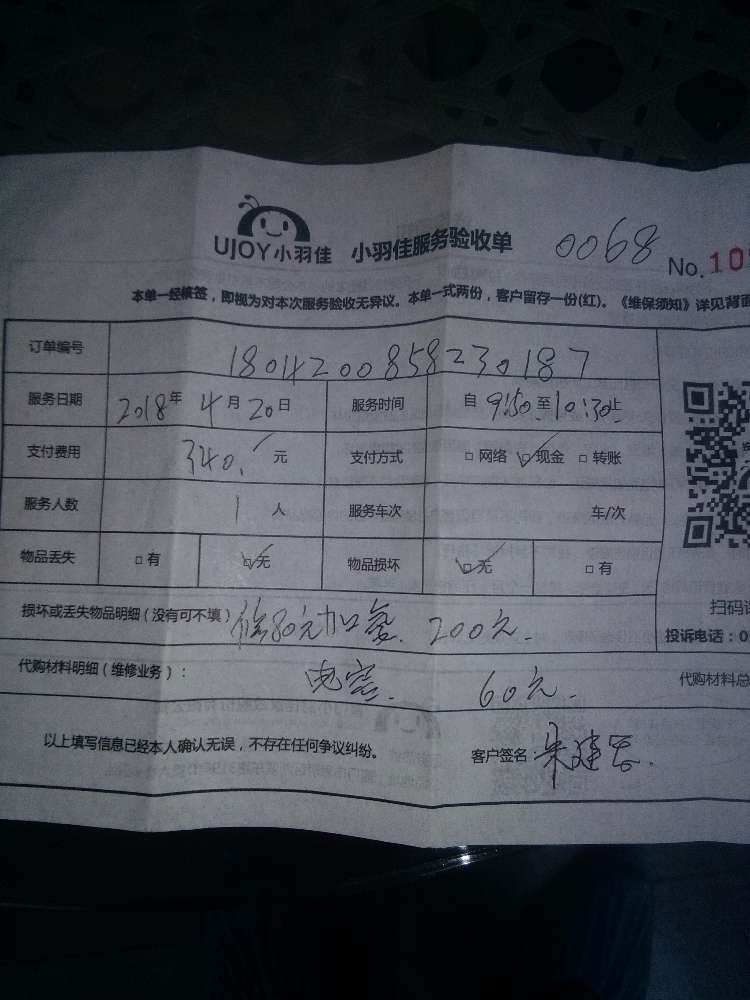 UJOY小羽佳 小羽佳服务验收单 0068 No.10
本单一经核签，即视为对本次服务验收无异议。本单一式两份，客户留存一份(红)。《维保须知》详见背面
订单编号 1804200858230187
服务日期 2018年4月20日 服务时间 自9:50至10:30止
支付费用 340.元 支付方式 □网络 ☑现金 □转账
服务人数 1人 服务车次 车/次
物品丢失 □有 ☑无 物品损坏 ☑无 □有
扫码
损坏或丢失物品明细（没有可不填） 修80元加 200元.
投诉电话：0
代购材料明细（维修业务）： 电容. 60元. 代购材料总
以上填写信息已经本人确认无误，不存在任何争议纠纷。 客户签名：朱建